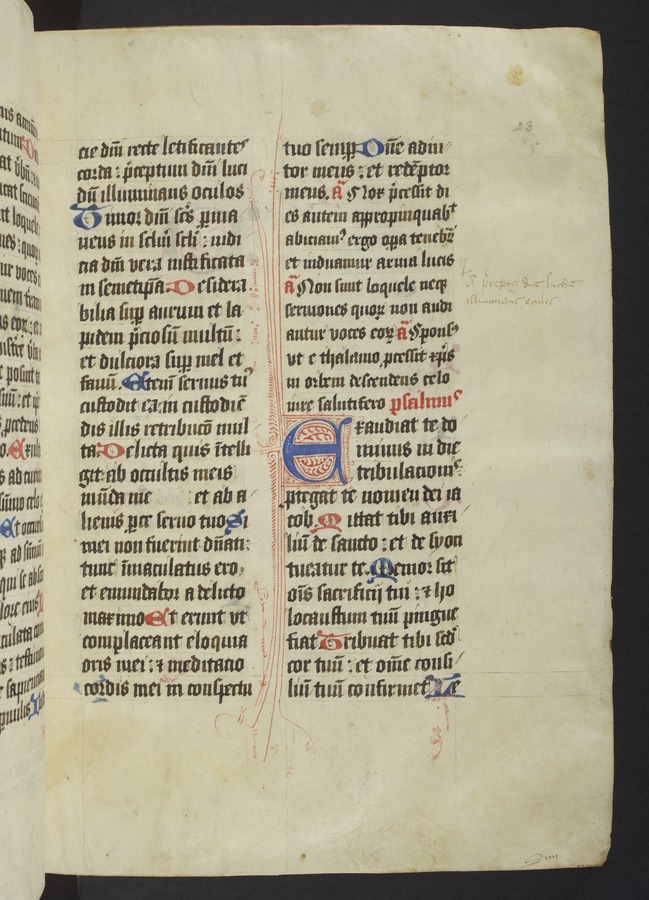 cie dn̄i recte letificantes
corda : p̄ceptum dn̄i luci
dū illuminans oculos
Timor dn̄i sc̄s p̄ma
nens in sc̄lm̄ sc̄li : iudi
cia dn̄i vera iustificata
in semetip̄a Desidera
bilia suꝑ aurum et la
pidem p̄ciosū multū :
et dulciora suꝑ mel et
fauū. Etem̄ seruus tu᾿
custodit ea : in custodiē
dis illis retributio mul
ta. Delicta quis ītelli
git : ab occultis meis
mūda me et ab a
lienis ꝑce seruo tuo Si
mei non fuerint dn̄ati :
tunc īmaculatus ero.
et emundabor a delicto
maximo Et erunt vt
complaceant eloquia
oris mei : ⁊ meditatio
cordis mei in conspectu
tuo semꝑ Dn̄e adiu
tor meus : et redēptor
meus. a᷑ Nox p̄cessit di
es autem appropinquab᷑t
abiciam᾿ ergo oꝑa tenebꝝ
et induamur arma lucis
a᷑ Non sunt loquele neqꝫ
sermones quoꝝ non audi
antur voces eoꝝ a᷑ Spons᾿
vt e thalamo ꝓcessit xp̄s
in orbem descendens celo
iure salutifero psalmus
Exaudiat te do
minus in die
tribulacionis
ꝓtegat te nomen dei ia
cob. Mittat tibi auxi
liū de sancto : et de syon
tueatur te. Memor sit
om̄s sacrificij tui : ⁊ ho
locaustum tuū pingue
fiat Tribuat tibi sc̄d᾿
cor tuū : et om̄e consi
liū tuū confirmet Le
23
p̄ceptū dn̄i lucidū
illuminans oculos